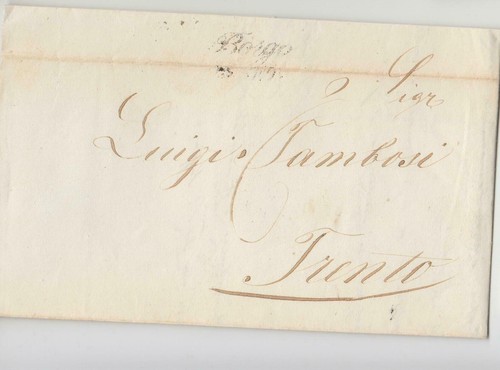 Borgo
Sigr
Luigi Tambosi
Trento